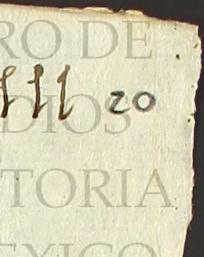 RO DE
20
DIOS
TORIA
EXICO